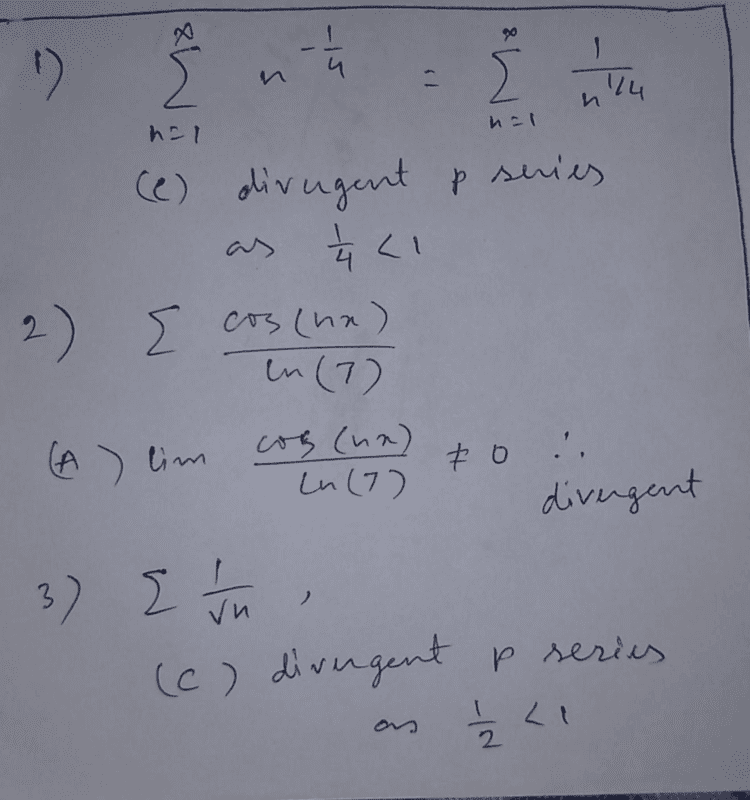 1) ∞ Σ n=1 n^(-1/4) = ∞ Σ n=1 1/n^(1/4)
(e) divergent p series
as 1/4 < 1
2) Σ cos(nx)/ln(7)
(A) lim cos(nx)/ln(7) ≠ 0 ∴
divergent
3) Σ 1/√n ,
(c) divergent p series
as 1/2 < 1